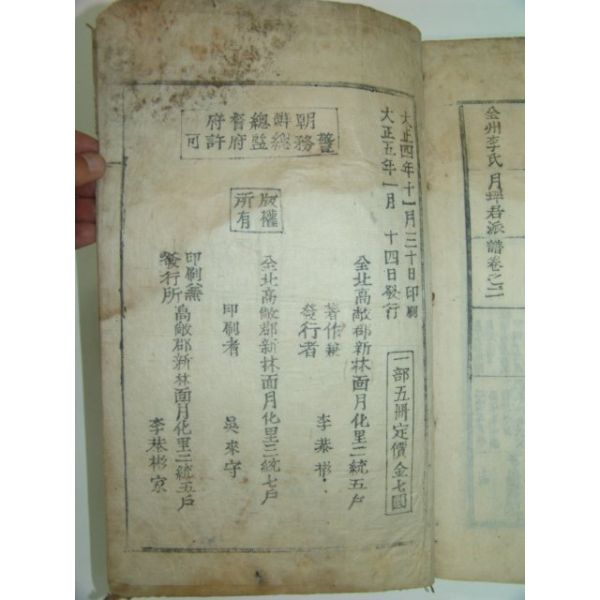 全州李氏月坪君派譜卷之二
大正四年十一月三十日印刷
大正五年一月十四日發行
朝鮮總督府
警務總監府許可
版權
所有
一部五冊定價金七圓
全北高敞郡新林面月化里二統五戶
著作兼
發行者
李基彬
全北高敞郡新林面月化里三統七戶
印刷者
吳來守
印刷兼
發行所
高敞郡新林面月化里二統五戶
李基彬家